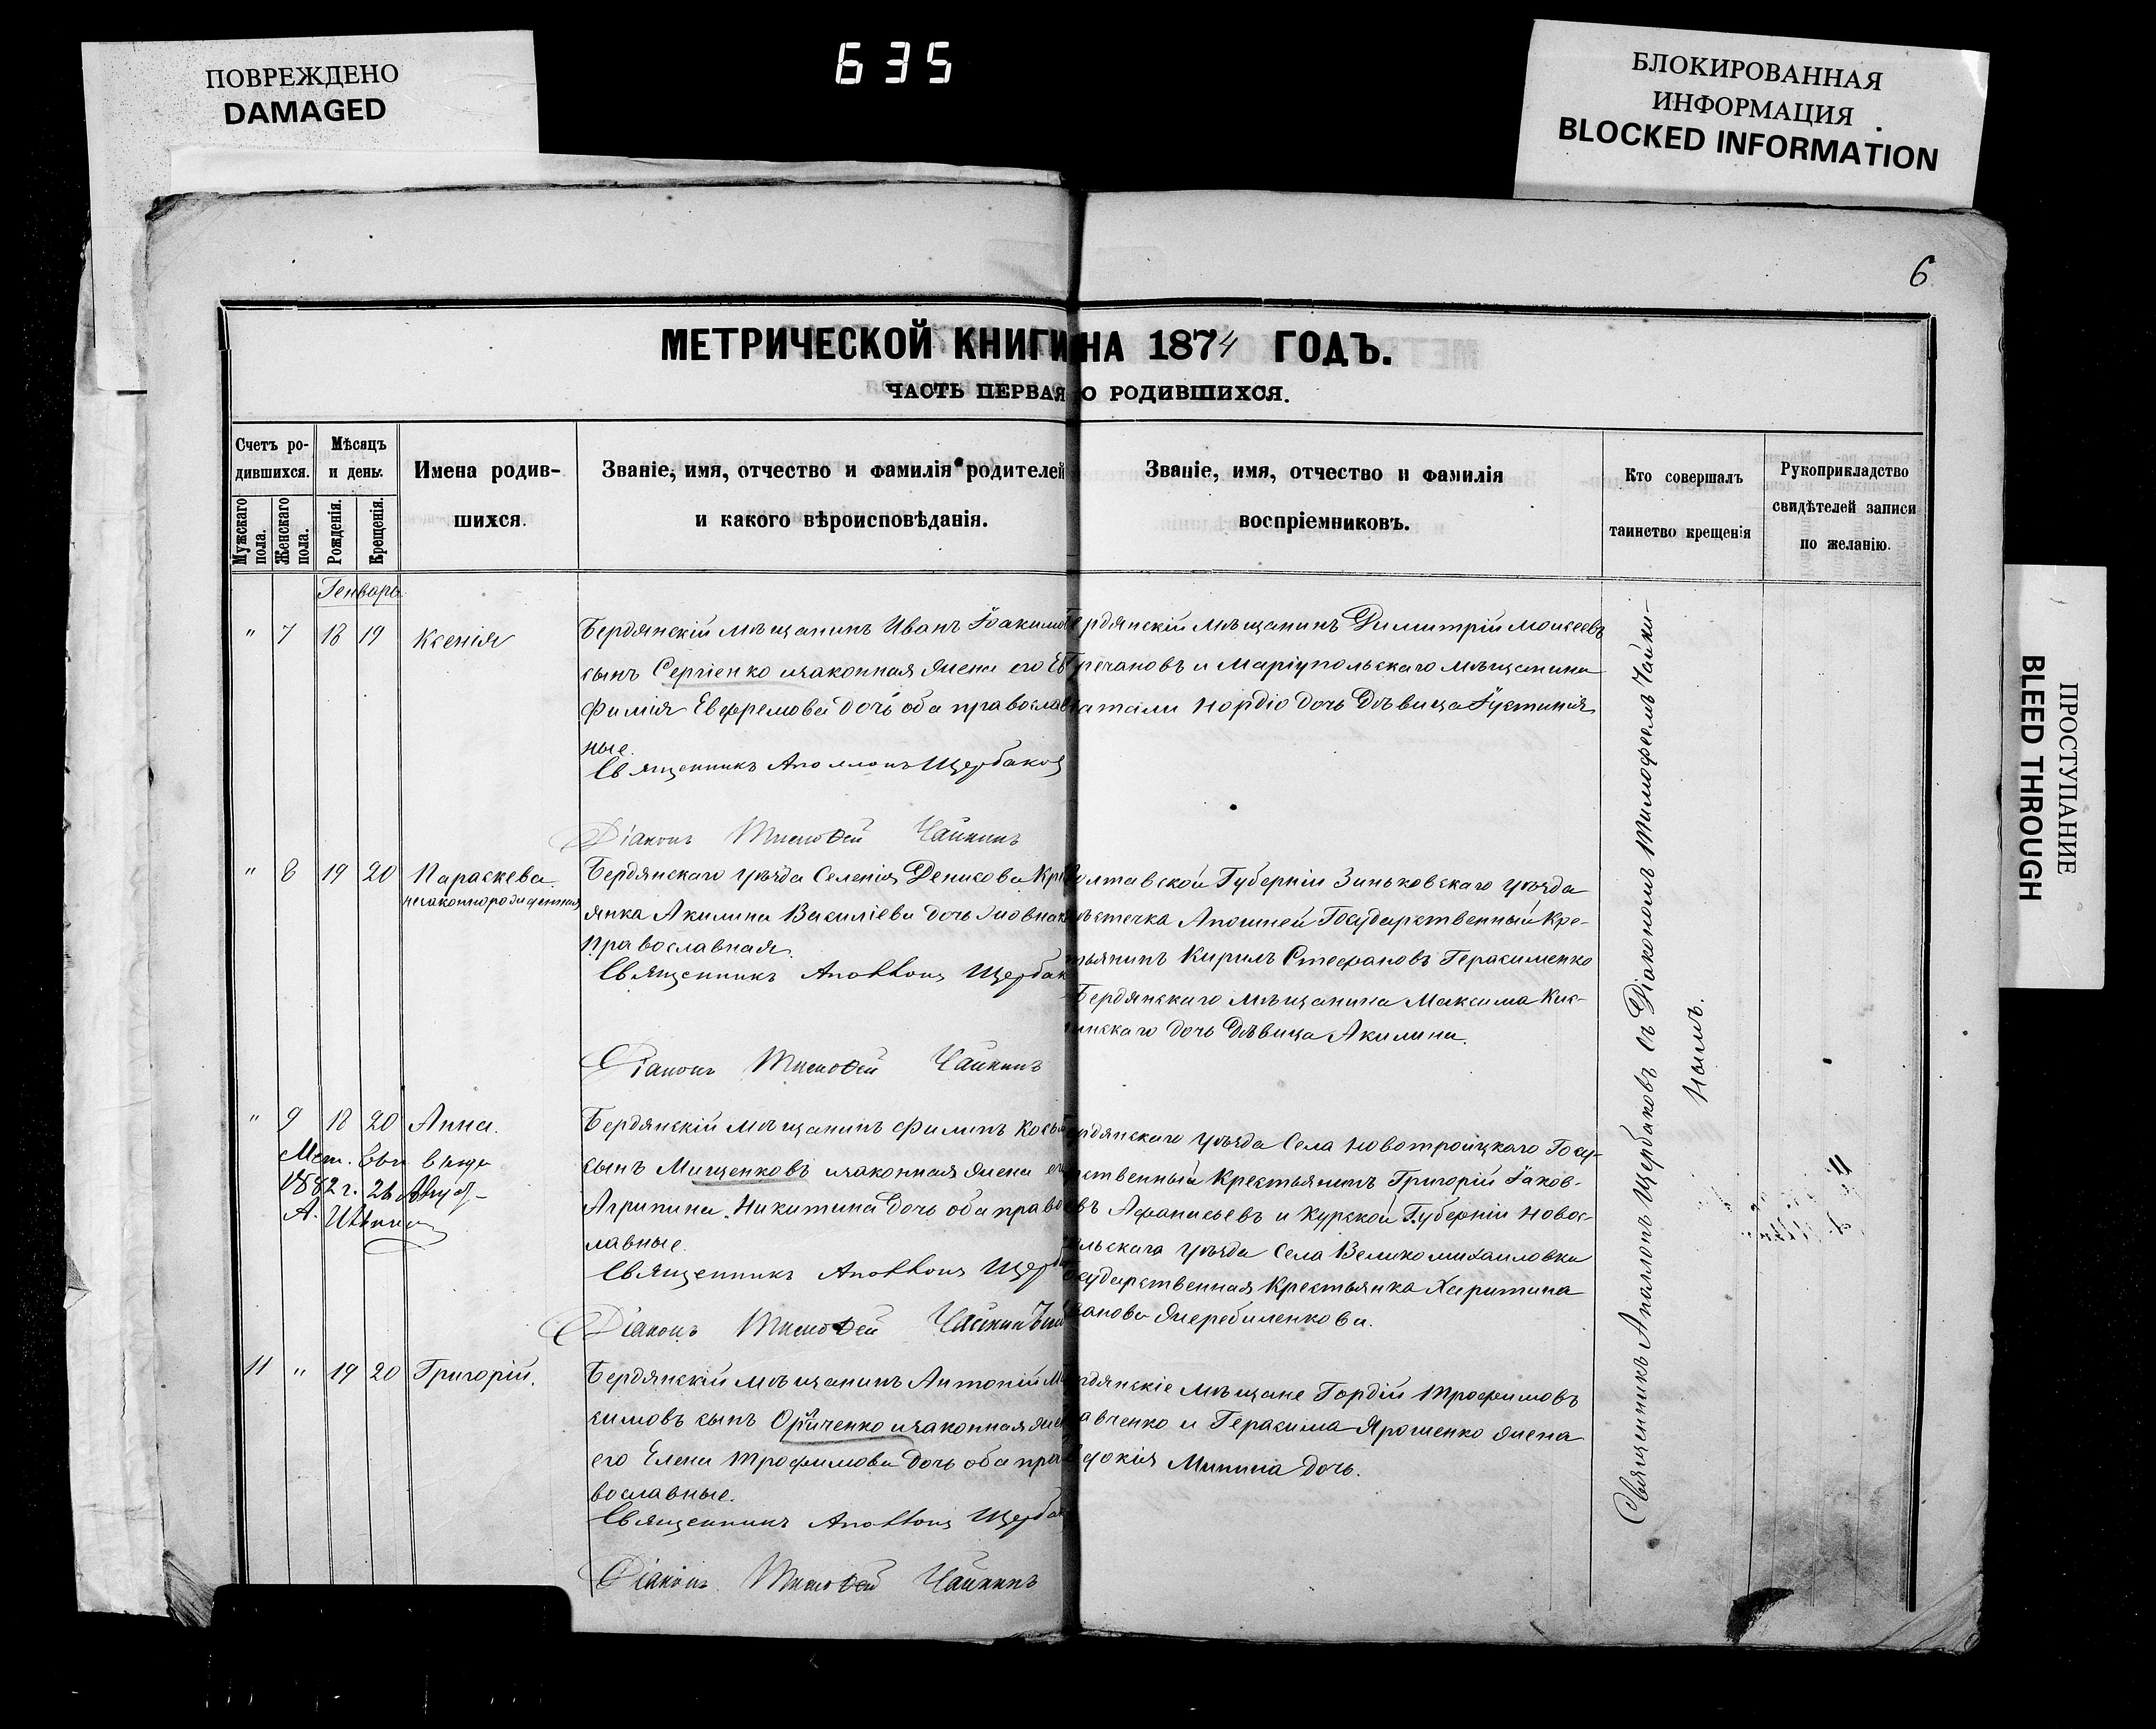 ПОВРЕЖДЕНО
DAMAGED
635
БЛОКИРОВАННАЯ
ИНФОРМАЦИЯ
BLOCKED INFORMATION
6
МЕТРИЧЕСКОЙ КНИГИ НА 1874 ГОДЪ.
ЧАСТЬ ПЕРВАЯ О РОДИВШИХСЯ.
Счетъ ро-
дившихся.
Мужскаго пола.
Женскаго пола.
Мѣсяцъ
и день.
Рожденія.
Крещенія.
Имена родив-
шихся.
Званіе, имя, отчество и фамилія родителей
и какого вѣроисповѣданія.
Званіе, имя, отчество и фамилія
воспріемниковъ.
Кто совершалъ
таинство крещенія
Рукоприкладство
свидѣтелей записи
по желанію.
Генваръ
" 7 18 19 Ксенія
Бердянскій мѣщанинъ Иванъ Іоакимо
сынъ Сергіенко изаконная жена его Ев
фимія Ефремова дочь оба православ
ные.
Священникъ Аполлонъ Щербаков
Діаконъ Тимофей Чайкинъ
ердянскій мѣщанинъ Димитрій Моисеевъ
Гречановъ и Маріупольскаго мѣщанина
Натали Нордіо дочь дѣвица Іустинія
" 8 19 20 Параскева
незаконнорожденная
Бердянскаго уѣзда Селенія Денисова Кр
янка Акилина Василіева дочь
Православная.
Священникъ Аполлонъ Щербак
Діаконъ Тимофей Чайкинъ
олтавской Губерніи Зиньковскаго уѣзда
мѣстечка Апошней Государственный Кре-
тьянинъ Кирилъ Стефановъ Герасименко
Бердянскаго мѣщанина Максима Кис-
инскаго дочь дѣвица Акилина.
" 9 18 20 Анна.
Мет. выд
1882 г. 26
Бердянскій мѣщанинъ Филипъ Косьм
сынъ Мищенковъ изаконная жена ег
Агрипина Никитина дочь оба право
лавные.
Священникъ Аполлонъ Щерб
Діаконъ Тимофей Чайкинъ
ердянскаго уѣзда Села Новотроицкаго Госу-
рственный Крестьянинъ Григорій Іаков-
евъ Афанасьевъ и Курской Губерніи Новос-
льскаго уѣзда Села Великомихаиловки
осударственная Крестьянка Харитина
ванова Жеребиленкова.
11 " 19 20 Григорій.
Бердянскій мѣщанинъ Антоній М
симовъ сынъ Ониченко изаконная жен
его Елена Трофимова дочь оба пра
вославные.
Священникъ Аполлонъ Щерба
Діаконъ Тимофей Чайкинъ
рдянскіе мѣщане Гордій Трофимовъ
авченко и Герасима Ярошенко жена
вдокія Минина дочь.
Священникъ Апаллонъ Щербаковъ съ Діакономъ Тимофеемъ Чайки-
нымъ.
ПРОСТУПАНИЕ
BLEED THROUGH